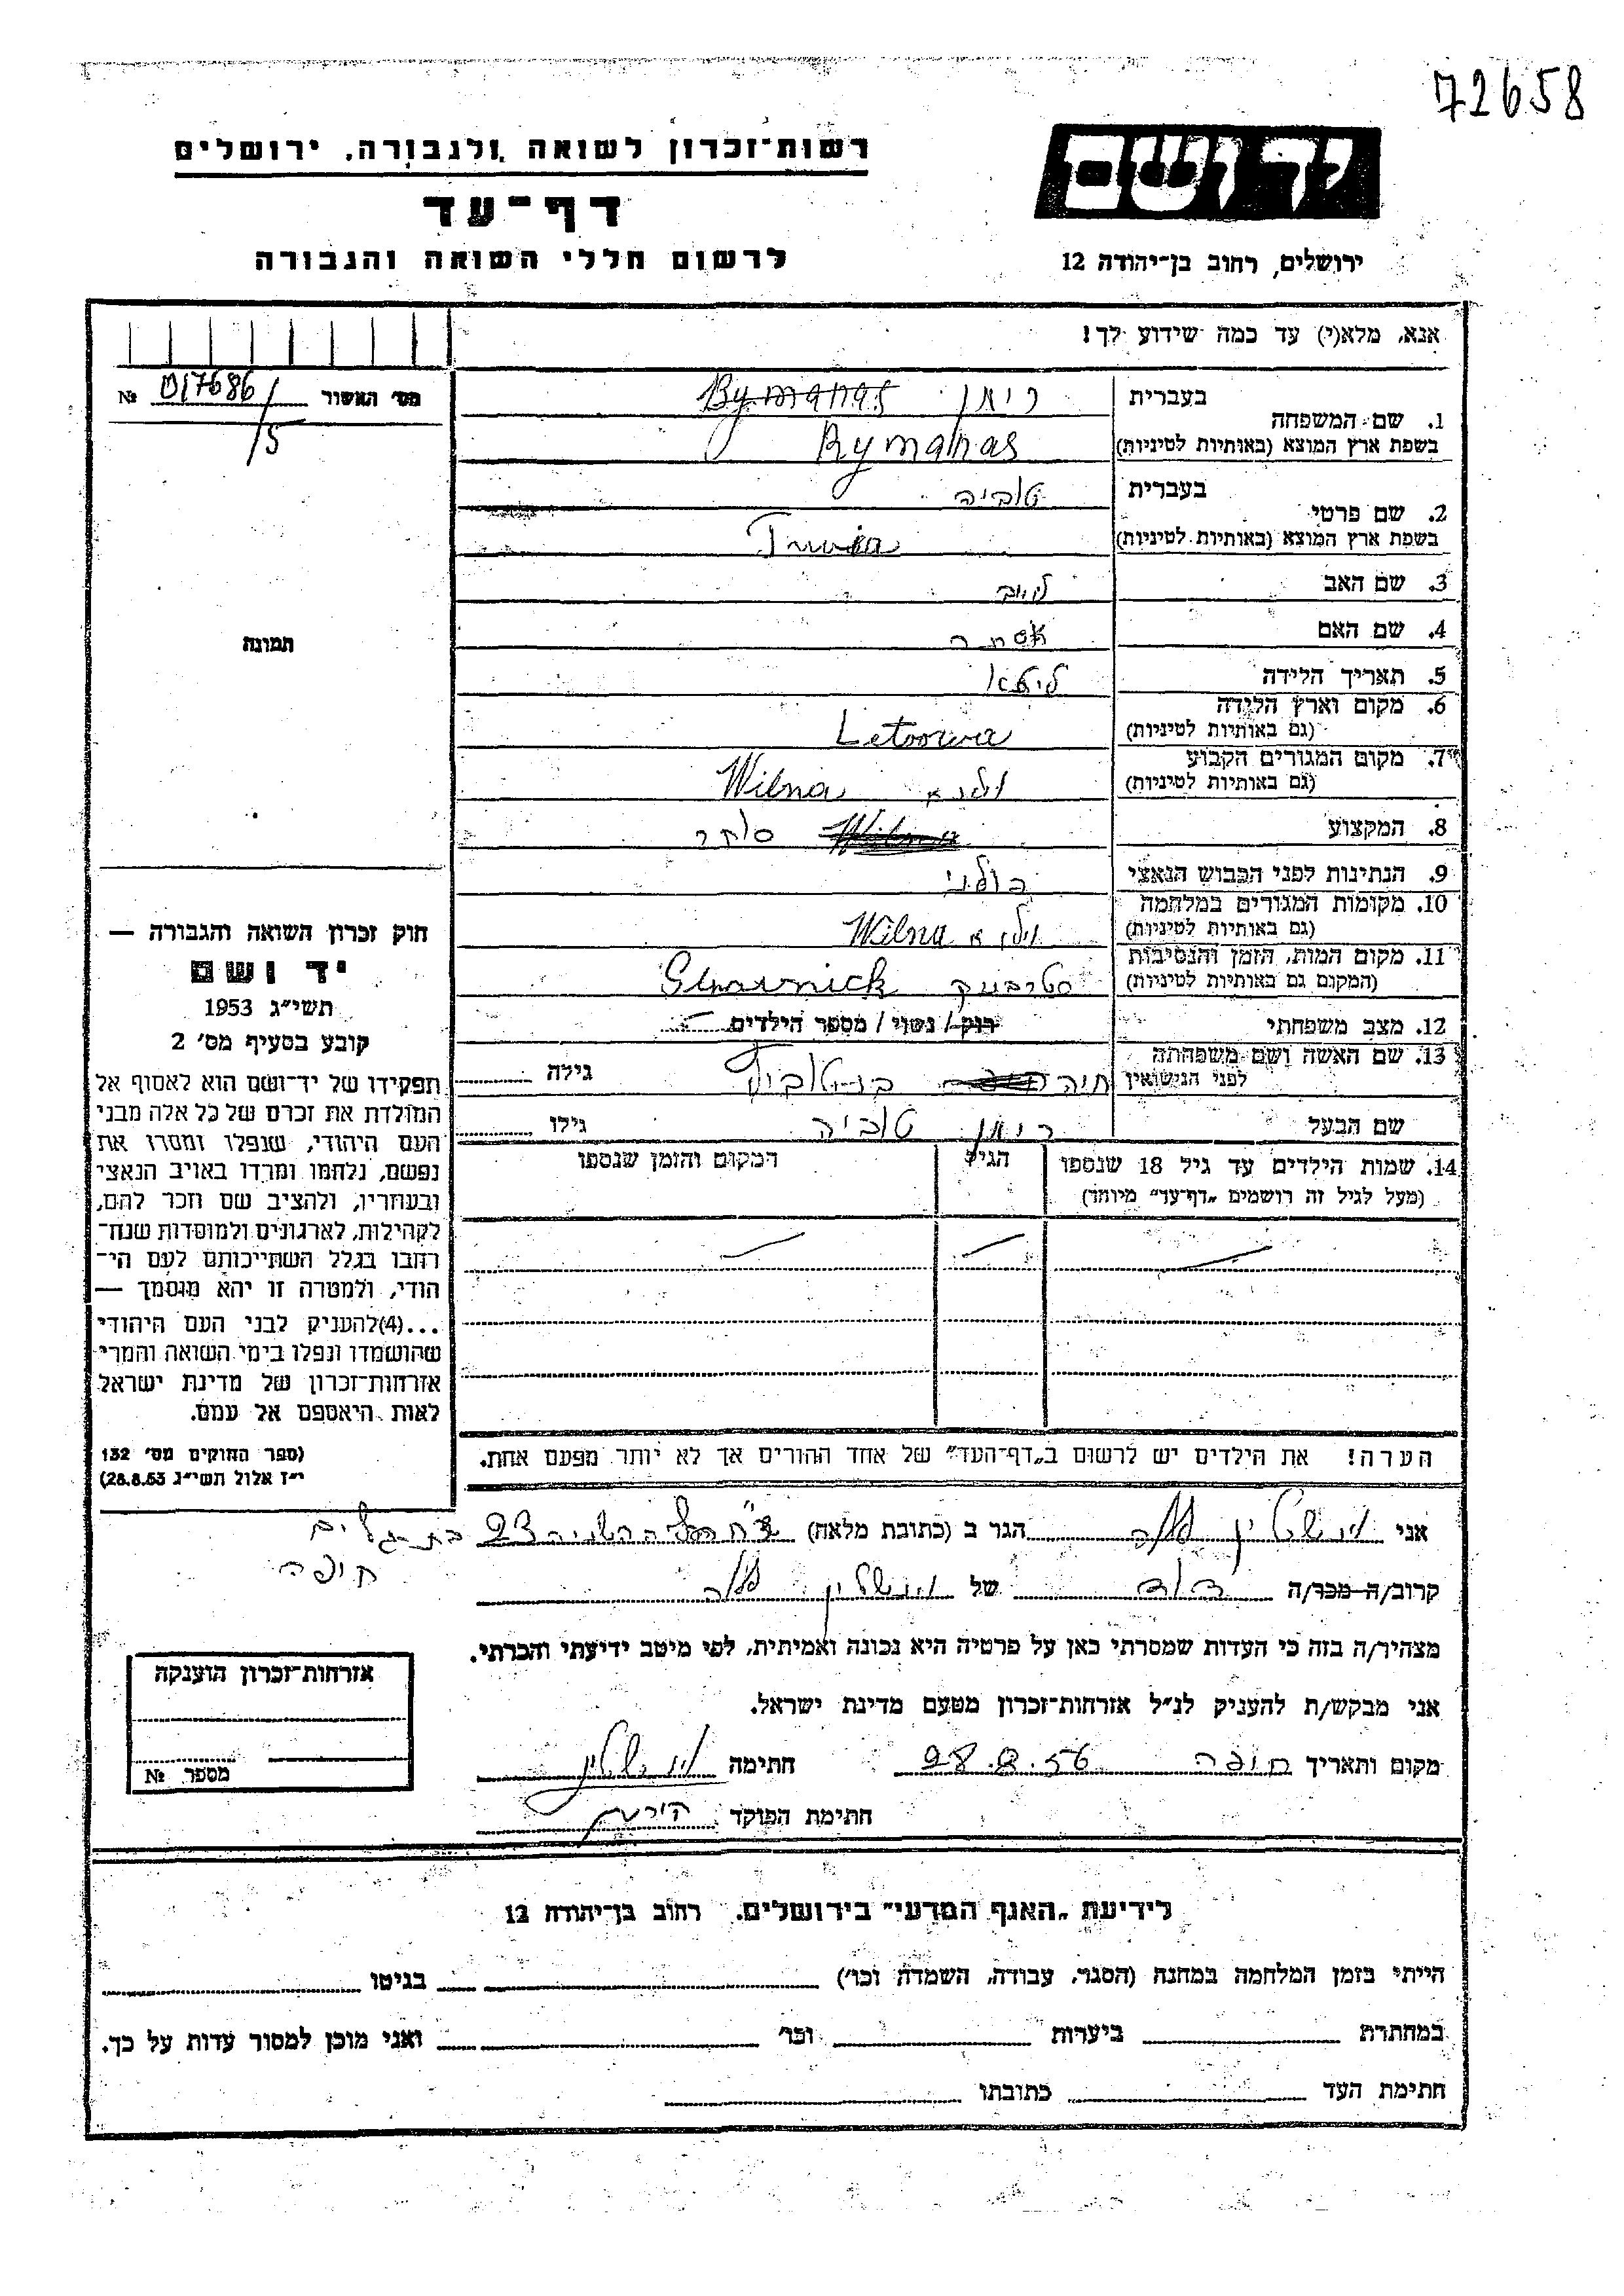 72658
רשות־זכרון לשואה ולגבורה, ירושלים
דף־עד
לרשום חללי השואה והגבורה
יד ושם
ירושלים, רחוב בן־יהודה 12
אנא, מלא(י) עד כמה שידוע לך!
מס׳ האשור 017686/5 №
1. שם המשפחה
בעברית רימן
בשפת ארץ המוצא (באותיות לטיניות) Rymanas
2. שם פרטי
בעברית טוביה
בשפת ארץ המוצא (באותיות לטיניות)
3. שם האב לייב
4. שם האם אסתר
5. תאריך הלידה ליטא
6. מקום וארץ הלידה
(גם באותיות לטיניות) Letoowa
7. מקום המגורים הקבוע
(גם באותיות לטיניות) וילנא Wilna
8. המקצוע סוחר
9. הנתינות לפני הכבוש הנאצי פולני
10. מקומות המגורים במלחמה
(גם באותיות לטיניות) וילנא Wilna
11. מקום המות, הזמן והנסיבות
(המקום גם באותיות לטיניות)
12. מצב משפחתי רוק/ נשוי/ מספר הילדים
13. שם האשה ושם משפחתה
לפני הנישואין חיה גילה
שם הבעל רימן טוביה גילו
14. שמות הילדים עד גיל 18 שנספו
(מעל לגיל זה רושמים „דף־עד״ מיוחד)
הגיל
המקום והזמן שנספו
הערה! את הילדים יש לרשום ב„דף־העד״ של אחד ההורים אך לא יותר מפעם אחת.
תמונה
חוק זכרון השואה והגבורה —
יד ושם
תשי״ג 1953
קובע בסעיף מס׳ 2
תפקידו של יד־ושם הוא לאסוף אל
המולדת את זכרם של כל אלה מבני
העם היהודי, שנפלו ומסרו את
נפשם, נלחמו ומרדו באויב הנאצי
ובעוזריו, ולהציב שם וזכר להם,
לקהילות, לארגונים ולמוסדות שנח־
רבו בגלל השתייכותם לעם הי־
הודי, ולמטרה זו יהא מוסמך —
...(4)להעניק לבני העם היהודי
שהושמדו ונפלו בימי השואה והמרי
אזרחות־זכרון של מדינת ישראל
לאות היאספם אל עמם.
(ספר החוקים מס׳ 132
י״ז אלול תשי״ג 28.8.53)
אני הגר ב (כתובת מלאה) 23 בת גלים
חיפה
קרוב/ה מכר/ה דוד של
מצהיר/ה בזה כי העדות שמסרתי כאן על פרטיה היא נכונה ואמיתית, לפי מיטב ידיעתי והכרתי.
אני מבקש/ת להעניק לנ״ל אזרחות־זכרון מטעם מדינת ישראל.
מקום ותאריך חיפה 28.8.56 חתימה
חתימת הפוקד
אזרחות־זכרון הוענקה
מספר №
לידיעת „האגף המדעי״ בירושלים. רחוב בן־יהודה 12
הייתי בזמן המלחמה במחנה (הסגר, עבודה, השמדה וכו׳) בגיטו
במחתרת ביערות וכו׳ ואני מוכן למסור עדות על כך.
חתימת העד כתובתו